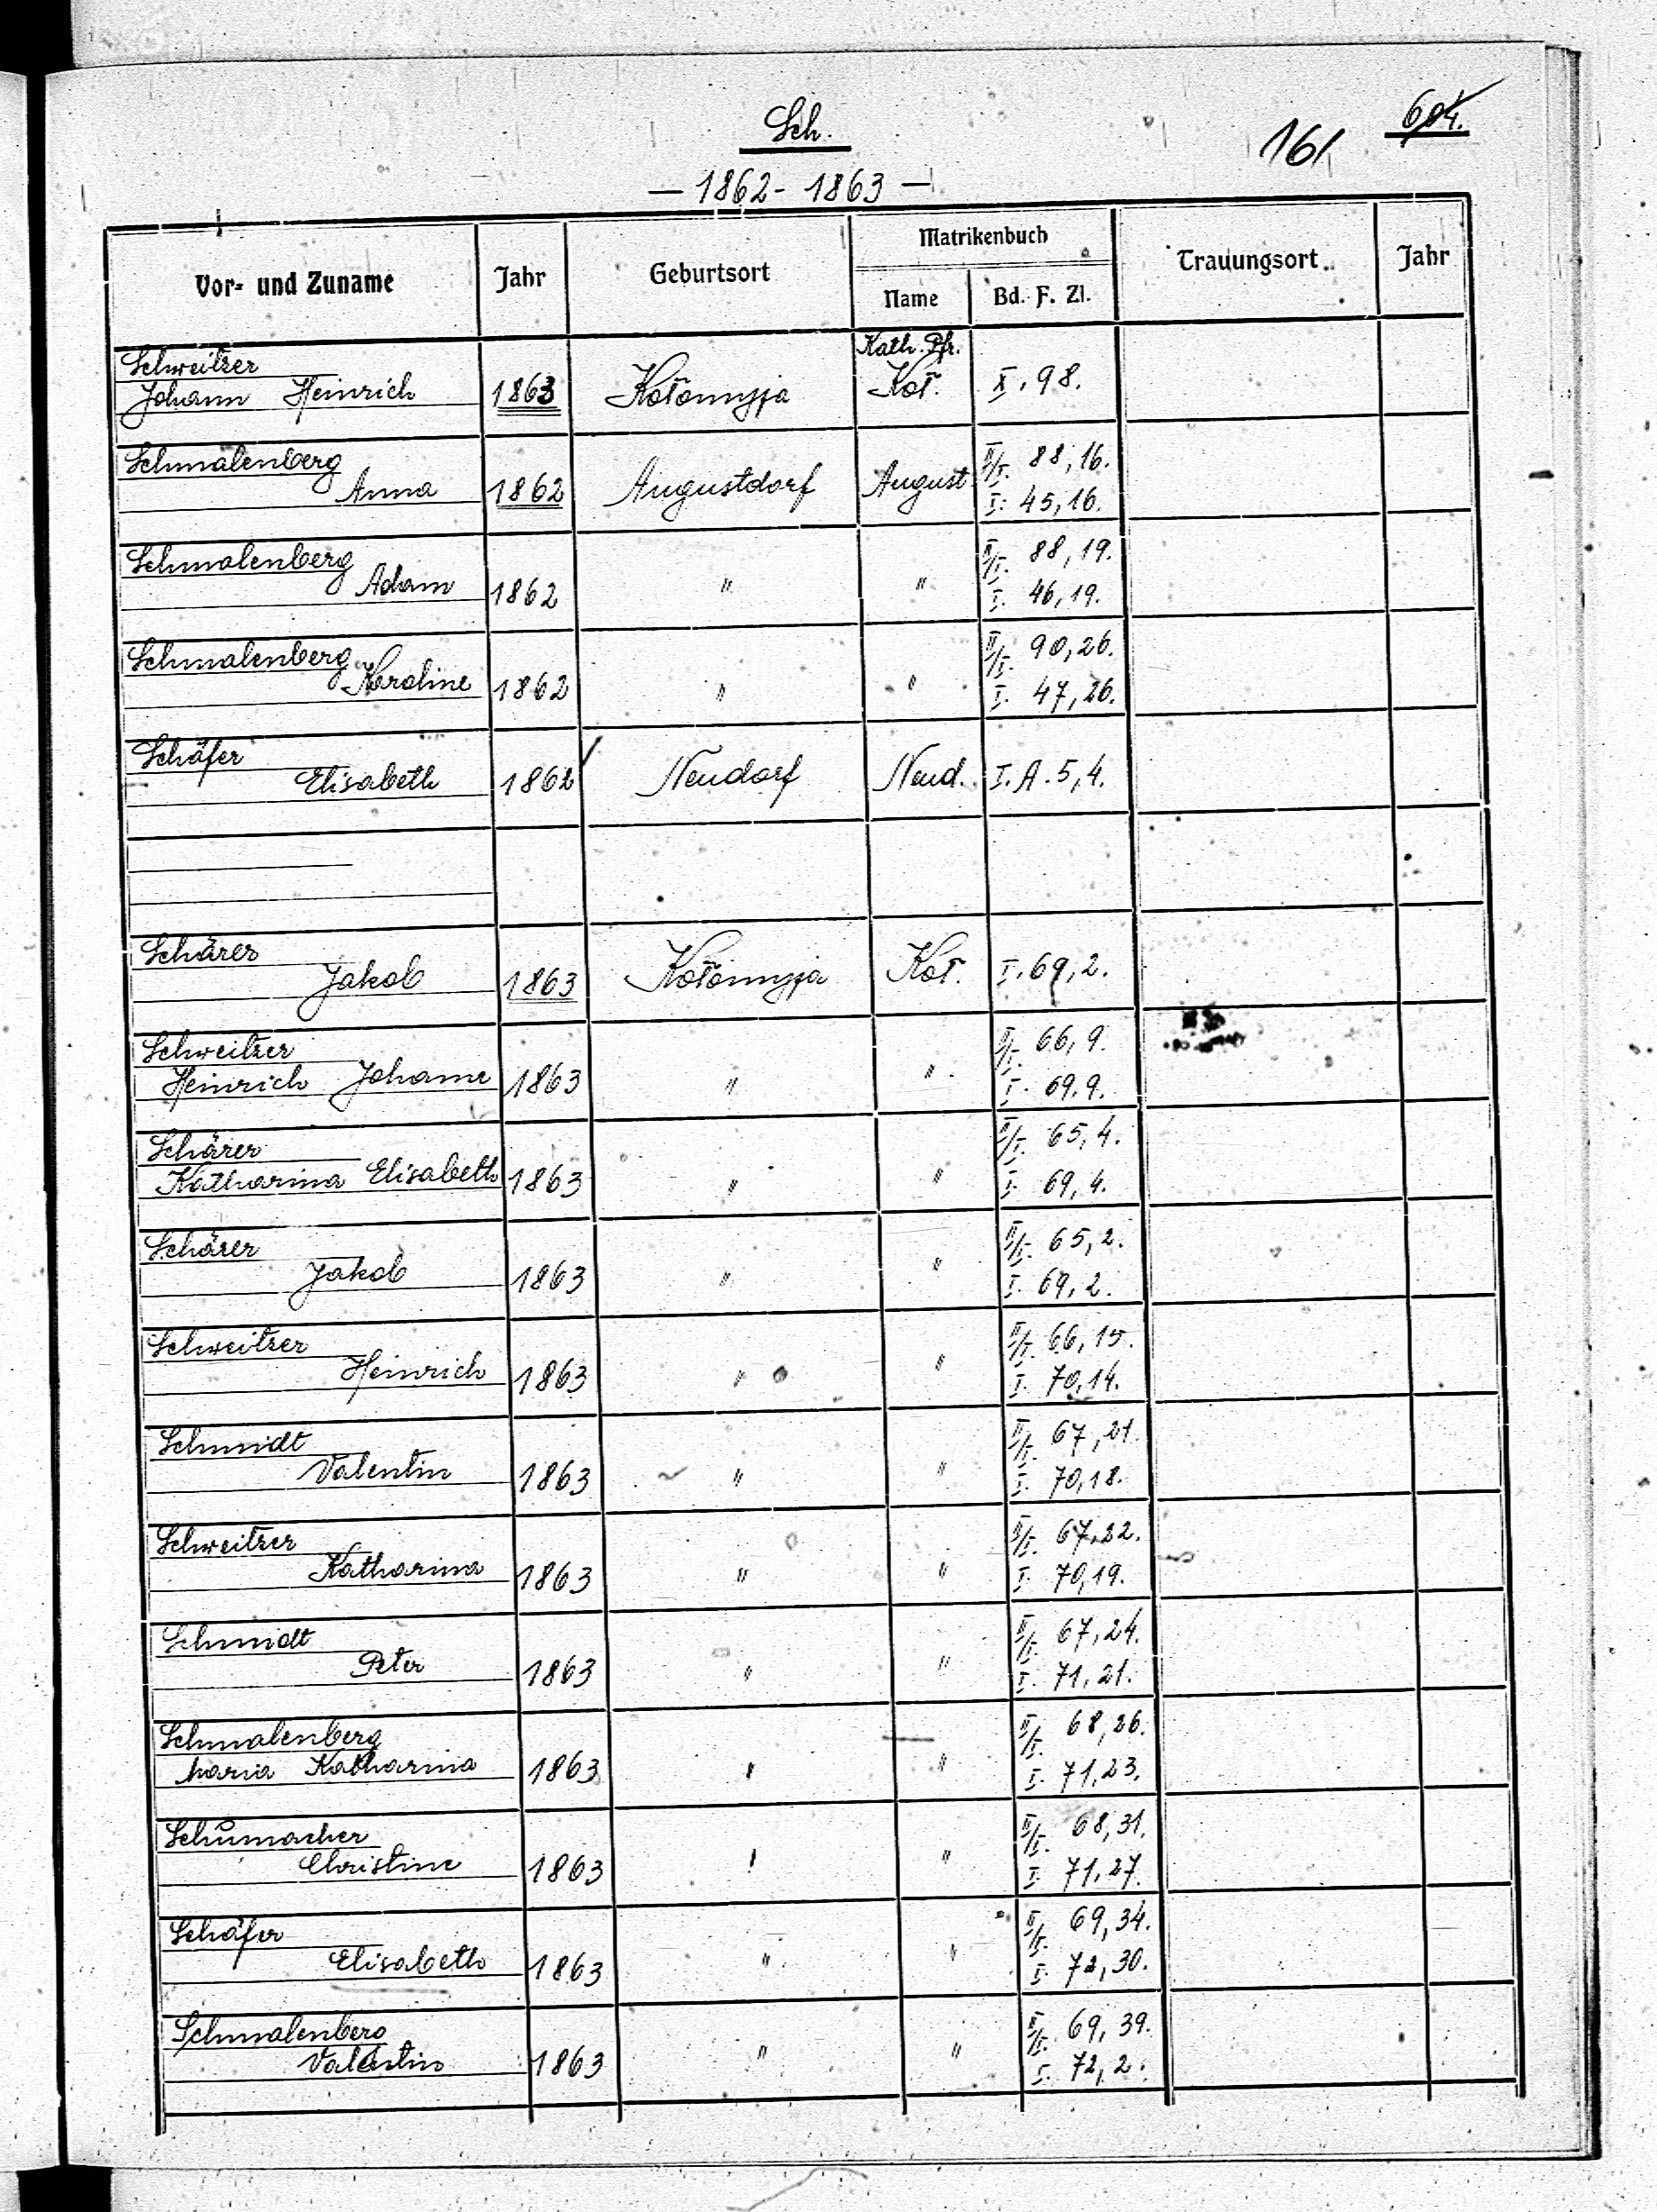 Sch.
161
604.
— 1862 - 1863 —
Vor- und Zuname Jahr Geburtsort Matrikenbuch Trauungsort Jahr
Name Bd. F. Zl.
Schweitzer Kath. Pfr.
Johann Heinrich 1863 Kołomyja Koł. X. 98.
Schmalenberg II/I. 88, 16.
Anna 1862 Augustdorf August I. 45, 16.
Schmalenberg II/I. 88, 19.
Adam 1862 " " I. 46, 19.
Schmalenberg II/I. 90, 26.
Karoline 1862 " " I. 47, 26.
Schäfer
Elisabeth 1862 Neudorf Neud. I. A. 5, 4.
Schärer
Jakob 1863 Kołomyja Koł. I. 69, 2.
Schweitzer II/I. 66, 9.
Heinrich Johann 1863 " " I. 69. 9.
Schärer II/I. 65, 4.
Katharina Elisabeth 1863 " " I. 69, 4.
Schärer II/I. 65, 2.
Jakob 1863 " " I. 69, 2.
Schweitzer II/I. 66, 15.
Heinrich 1863 " " I. 70, 14.
Schmidt II/I. 67, 21.
Valentin 1863 " " I. 70, 18.
Schweitzer II/I. 67, 22.
Katharina 1863 " " I. 70, 19.
Schmidt II/I. 67, 24.
Peter 1863 " " I. 71, 21.
Schmalenberg II/I. 68, 26.
Maria Katharina 1863 " " I. 71, 23.
Schumacher II/I. 68, 31.
Christine 1863 " " I. 71, 27.
Schäfer II/I. 69, 34.
Elisabeth 1863 " " I. 72, 30.
Schmalenberg II/I. 69, 39.
Valentin 1863 " " I. 72, 2.